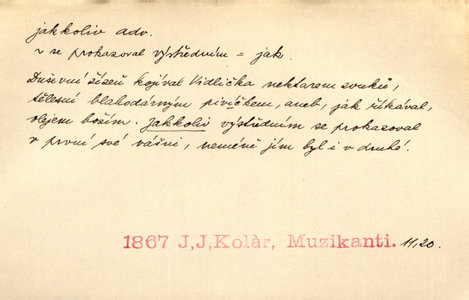 jakkoliv adv.
v se prokazoval výstředním = jak.
Duševní žízeň kojíval Vidlička nektarem zvuků,
tělesní blahodárným pivíčkem, aneb, jak říkával,
olejem božím. Jakkoliv výstředním se prokazoval
v první své vášni, neméně jím byl i v druhé.
1867 J,J,Kolàr, Muzikanti. 11,20.